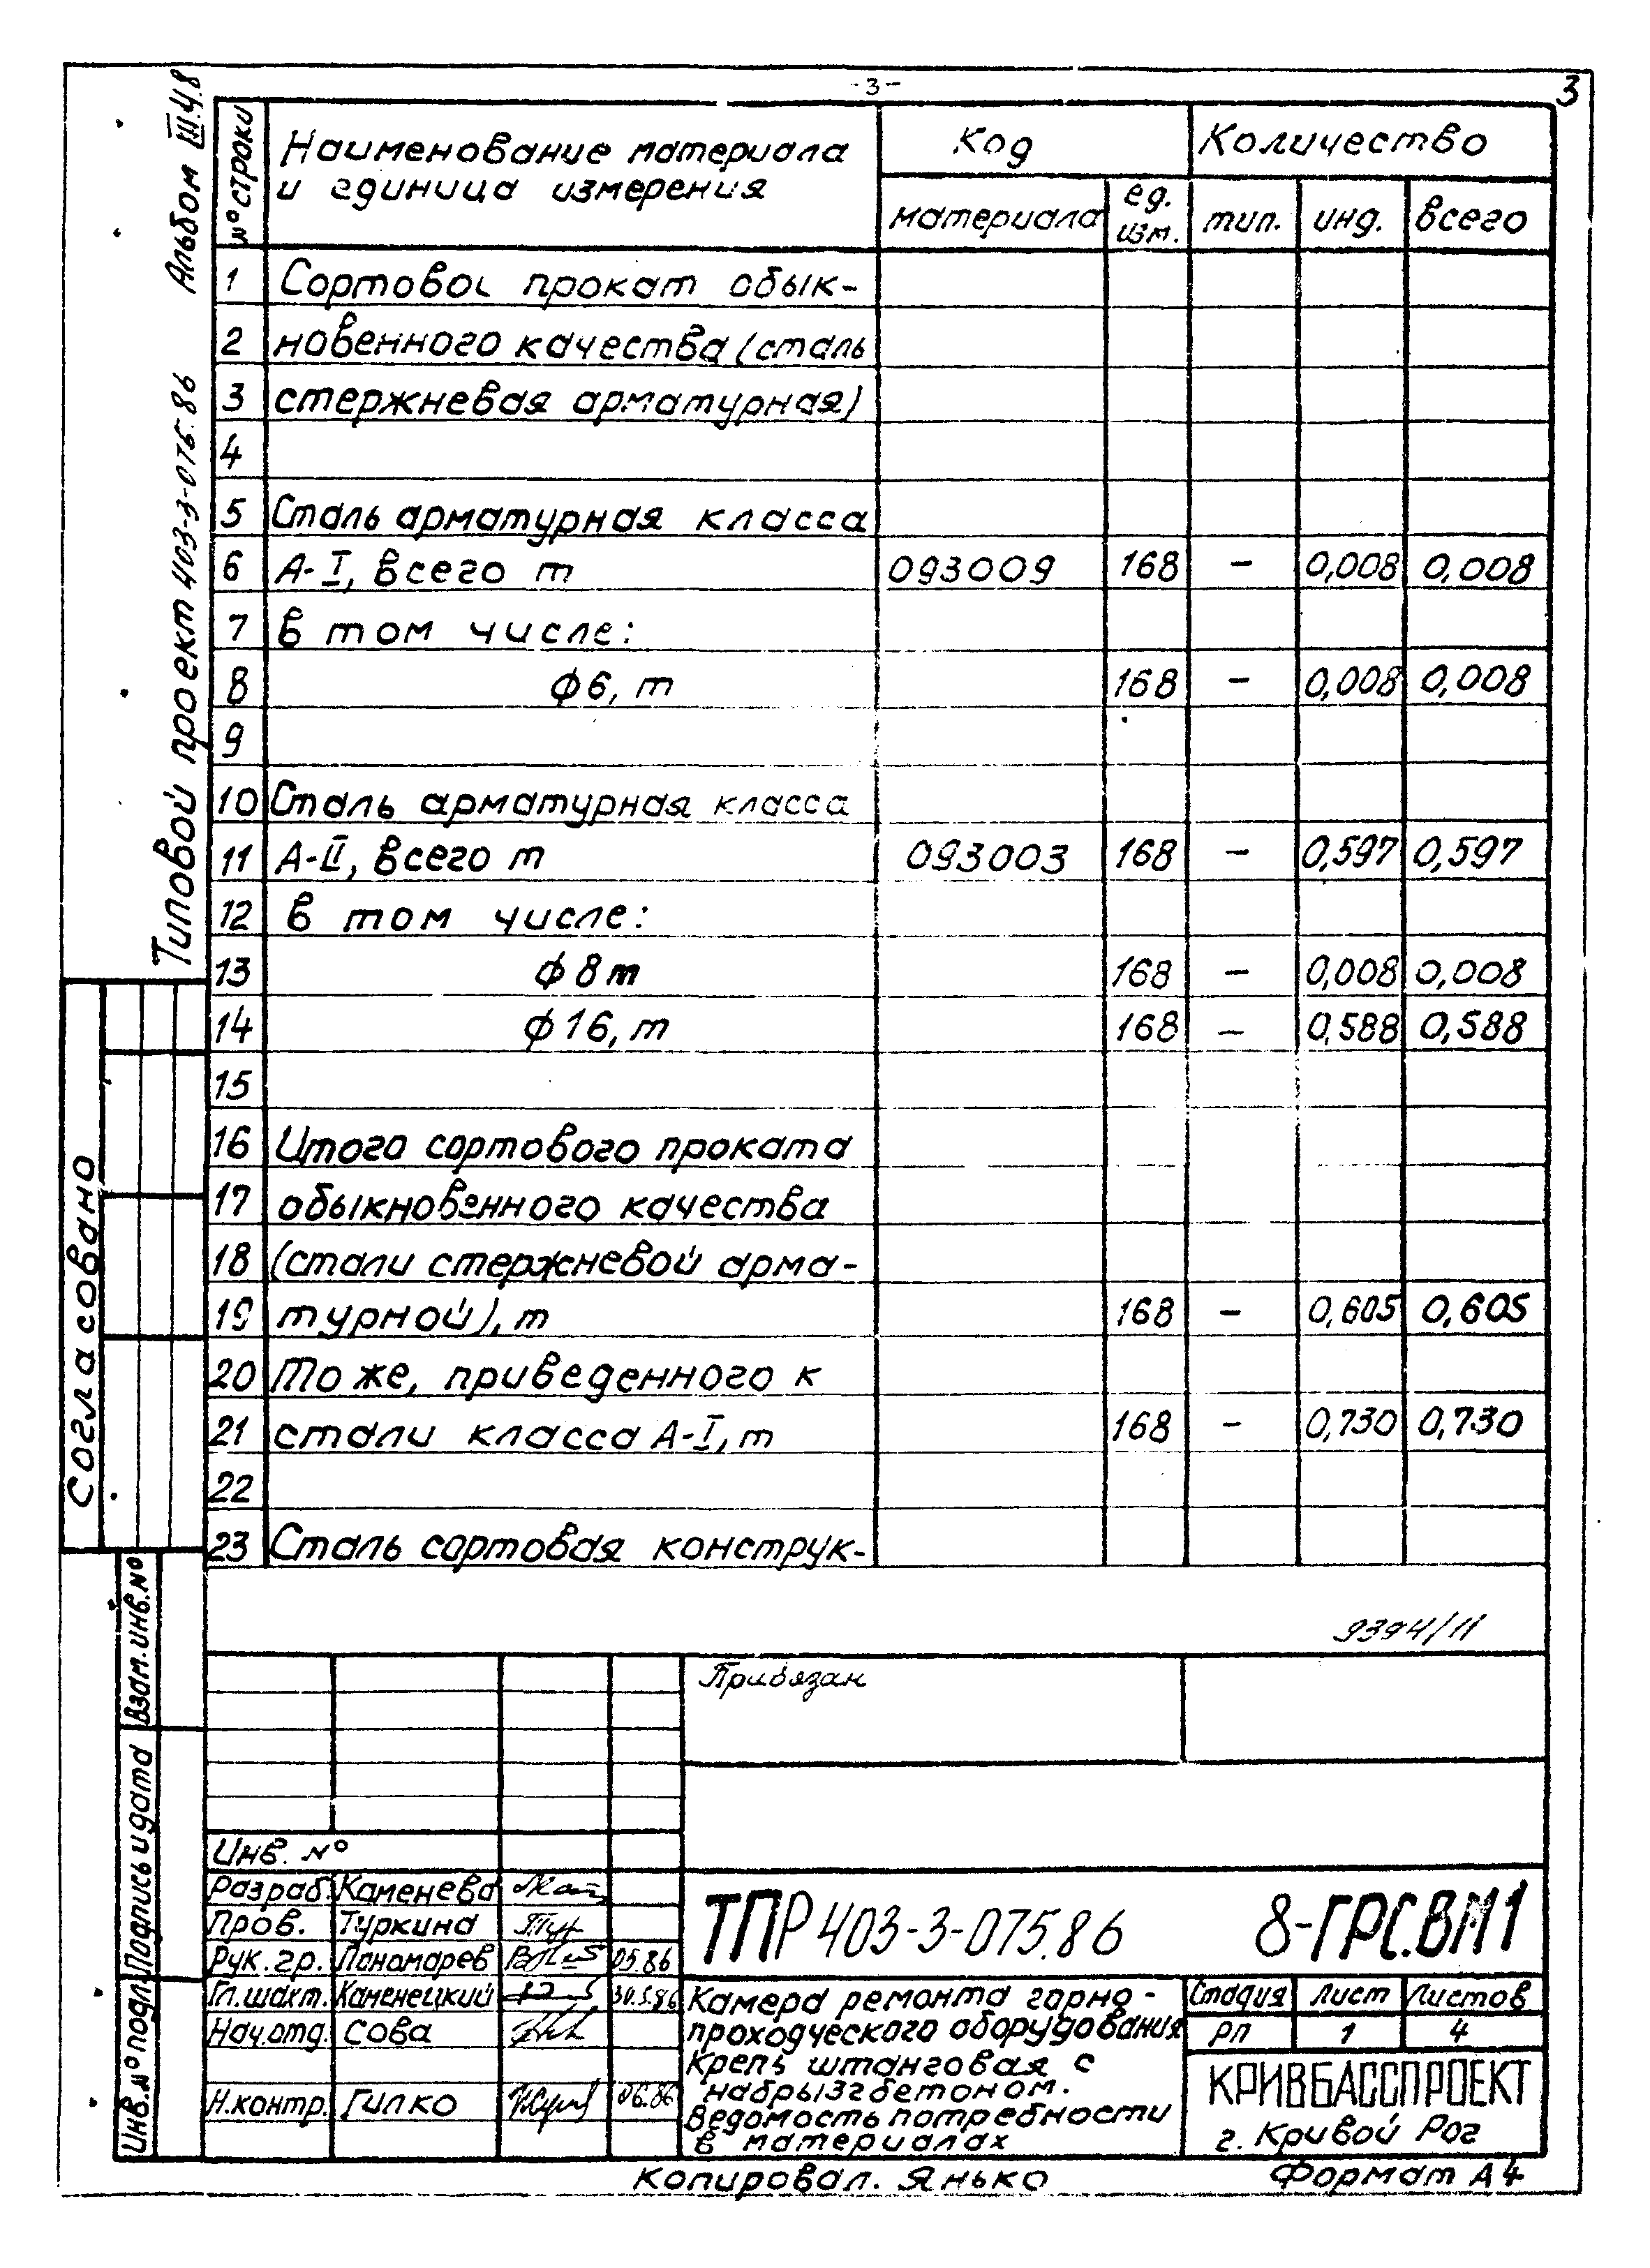 -3-
3
Альбом III.4.8
Типовой проект 403-3-075.86
№ строки
Наименование материала
и единица измерения
Код
Количество
материала
ед.
изм.
тип.
инд.
всего
1 Сортовой прокат обык-
2 новенного качества (сталь
3 стержневая арматурная)
4
5 Сталь арматурная класса
6 А-I, всего т 093009 168 – 0,008 0,008
7 в том числе:
8 ф6, т 168 – 0,008 0,008
9
10 Сталь арматурная класса
11 А-II, всего т 093003 168 – 0,597 0,597
12 в том числе:
13 ф8т 168 – 0,008 0,008
14 ф16, т 168 – 0,588 0,588
15
16 Итого сортового проката
17 обыкновенного качества
18 (стали стержневой арма-
19 турной), т 168 – 0,605 0,605
20 То же, приведенного к
21 стали класса А-I, т 168 – 0,730 0,730
22
23 Сталь сортовая конструк-
Согласовано
Взам. инв. №
Подпись и дата
Инв. № подл.
9394/11
Привязан
Инв. №
Разраб. Каменева
Пров. Туркина
Рук. гр. Пономарев 05.86
Гл. шахт. Каменецкий 30.5.86
Нач. отд. Сова
Н.контр. Гилко 06.86
ТПР 403-3-075.86 8-ГРС.ВМ1
Камера ремонта горно-
проходческого оборудования
Крепь штанговая с
набрызгбетоном.
Ведомость потребности
в материалах
Стадия Лист Листов
РП 1 4
КРИВБАССПРОЕКТ
г. Кривой Рог
Копировал. Янько
Формат А4